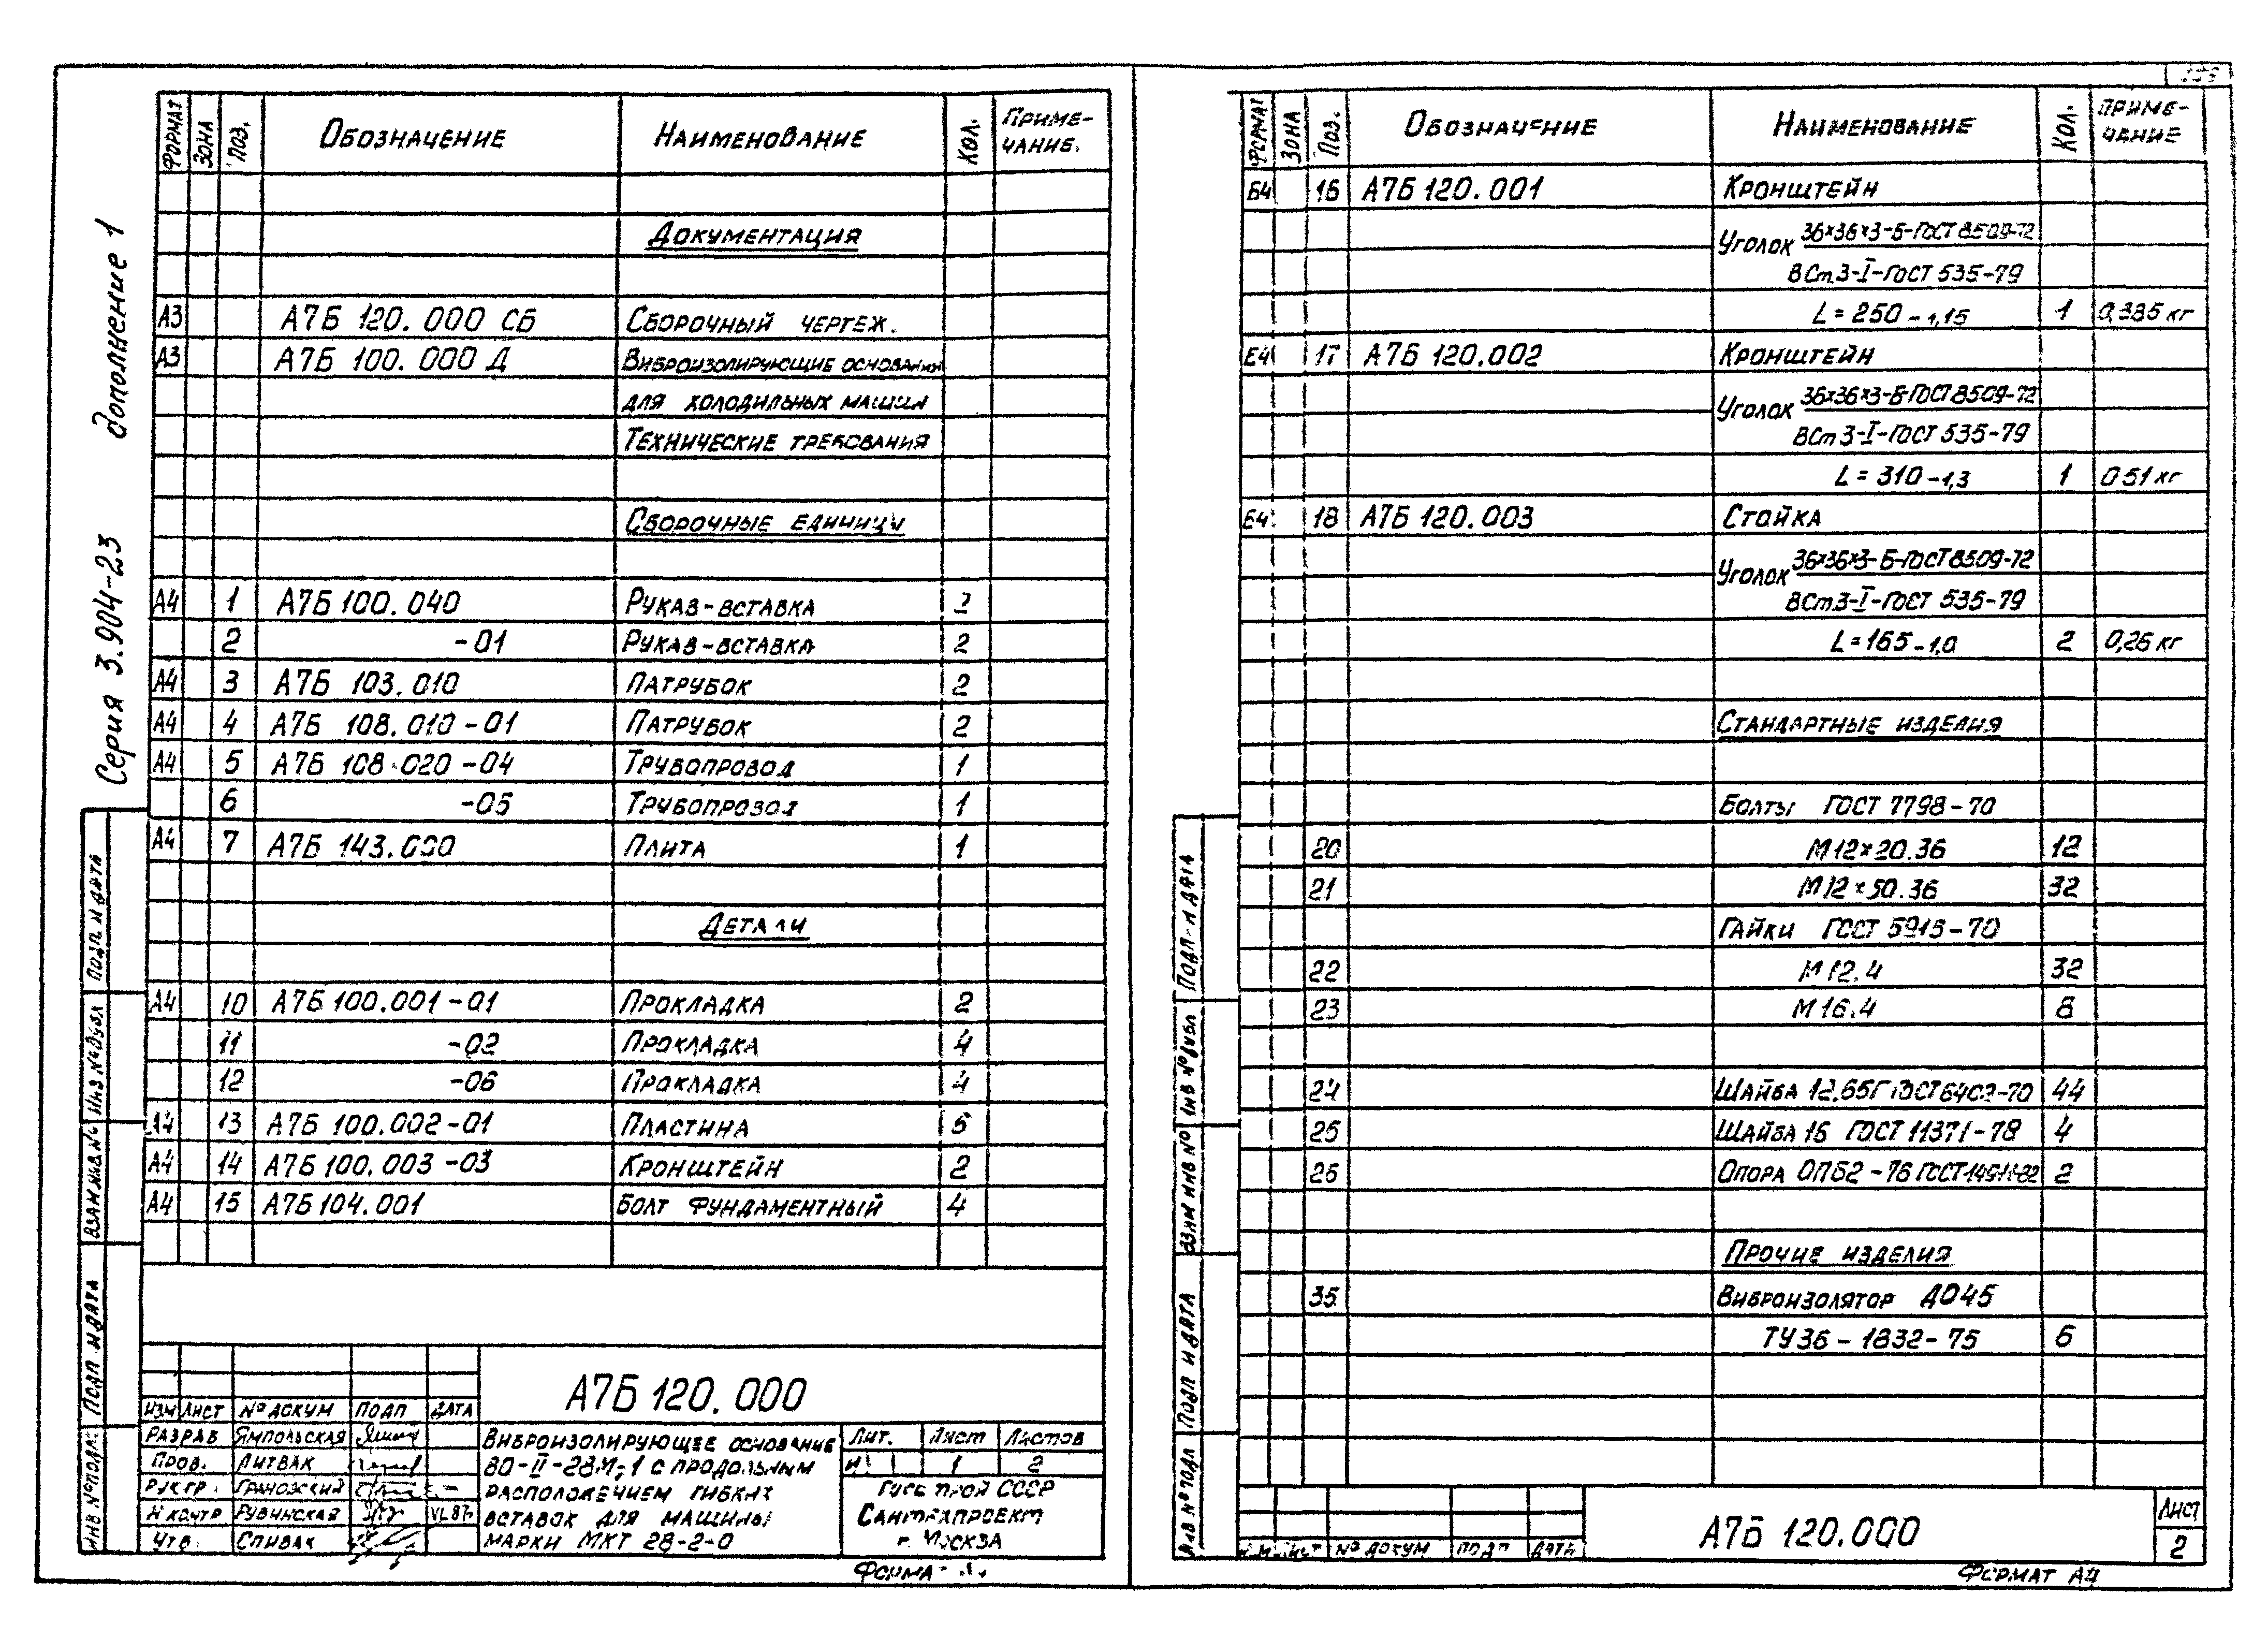 Серия 3.904-23 дополнение 1
ФОРМАТ ЗОНА ПОЗ. ОБОЗНАЧЕНИЕ НАИМЕНОВАНИЕ КОЛ. ПРИМЕ-
ЧАНИЕ.
ДОКУМЕНТАЦИЯ
А3 А7Б 120.000 СБ СБОРОЧНЫЙ ЧЕРТЕЖ.
А3 А7Б 100.000 Д ВИБРОИЗОЛИРУЮЩИЕ ОСНОВАНИЯ
ДЛЯ ХОЛОДИЛЬНЫХ МАШИН
ТЕХНИЧЕСКИЕ ТРЕБОВАНИЯ
СБОРОЧНЫЕ ЕДИНИЦЫ
А4 1 А7Б 100.040 РУКАВ-ВСТАВКА 2
2 -01 РУКАВ-ВСТАВКА 2
А4 3 А7Б 103.010 ПАТРУБОК 2
А4 4 А7Б 108.010-01 ПАТРУБОК 2
А4 5 А7Б 108.020-04 ТРУБОПРОВОД 1
6 -05 ТРУБОПРОВОД 1
А4 7 А7Б 143.000 ПЛИТА 1
ДЕТАЛИ
А4 10 А7Б 100.001-01 ПРОКЛАДКА 2
11 -02 ПРОКЛАДКА 4
12 -06 ПРОКЛАДКА 4
А4 13 А7Б 100.002-01 ПЛАСТИНА 6
А4 14 А7Б 100.003-03 КРОНШТЕЙН 2
А4 15 А7Б 104.001 БОЛТ ФУНДАМЕНТНЫЙ 4
ПОДП. И ДАТА
ИНВ №ДУБЛ
ВЗАМ ИНВ. №
ПОДП И ДАТА
ИНВ №ПОДЛ.
А7Б 120.000
ИЗМ ЛИСТ № ДОКУМ ПОДП ДАТА
РАЗРАБ ЯМПОЛЬСКАЯ
ПРОВ. ЛИТВАК
РУК ГР. ГРАНОВСКИЙ
Н КОНТР РУБИНСКАЯ VI.87
УТВ. СПИВАК
ВИБРОИЗОЛИРУЮЩЕЕ ОСНОВАНИЕ
ВО-II-28М-1 С ПРОДОЛЬНЫМ
РАСПОЛОЖЕНИЕМ ГИБКИХ
ВСТАВОК ДЛЯ МАШИНЫ
МАРКИ МКТ 28-2-0
ЛИТ. ЛИСТ ЛИСТОВ
И 1 2
ГОССТРОЙ СССР
САНТЕХПРОЕКТ
г. МОСКВА
ФОРМАТ А4
ФОРМАТ ЗОНА ПОЗ. ОБОЗНАЧЕНИЕ НАИМЕНОВАНИЕ КОЛ. ПРИМЕ-
ЧАНИЕ
Б4 16 А7Б 120.001 КРОНШТЕЙН
УГОЛОК 36×36×3-Б-ГОСТ 8509-72
ВСт3-I-ГОСТ 535-79
L=250-1,15 1 0,385 кг
Б4 17 А7Б 120.002 КРОНШТЕЙН
УГОЛОК 36×36×3-Б-ГОСТ 8509-72
ВСт3-I-ГОСТ 535-79
L=310-1,3 1 0 51 кг
Б4 18 А7Б 120.003 СТОЙКА
УГОЛОК 36×36×3-Б-ГОСТ 8509-72
ВСт3-I-ГОСТ 535-79
L=165-1,0 2 0,26 кг
СТАНДАРТНЫЕ ИЗДЕЛИЯ
БОЛТЫ ГОСТ 7798-70
20 М12×20.36 12
21 М12×50.36 32
ГАЙКИ ГОСТ 5915-70
22 М12.4 32
23 М16.4 8
24 ШАЙБА 12.65Г ГОСТ 6402-70 44
25 ШАЙБА 16 ГОСТ 11371-78 4
26 ОПОРА ОПБ2-76 ГОСТ 14911-82 2
ПРОЧИЕ ИЗДЕЛИЯ
35 ВИБРОИЗОЛЯТОР ДО45
ТУ36-1832-75 6
ПОДП. И ДАТА
ИНВ №ДУБЛ
ВЗАМ ИНВ №
ПОДП И ДАТА
ИНВ № ПОДЛ
ИЗМ ЛИСТ № ДОКУМ ПОДП ДАТА
А7Б 120.000
ЛИСТ
2
ФОРМАТ А4